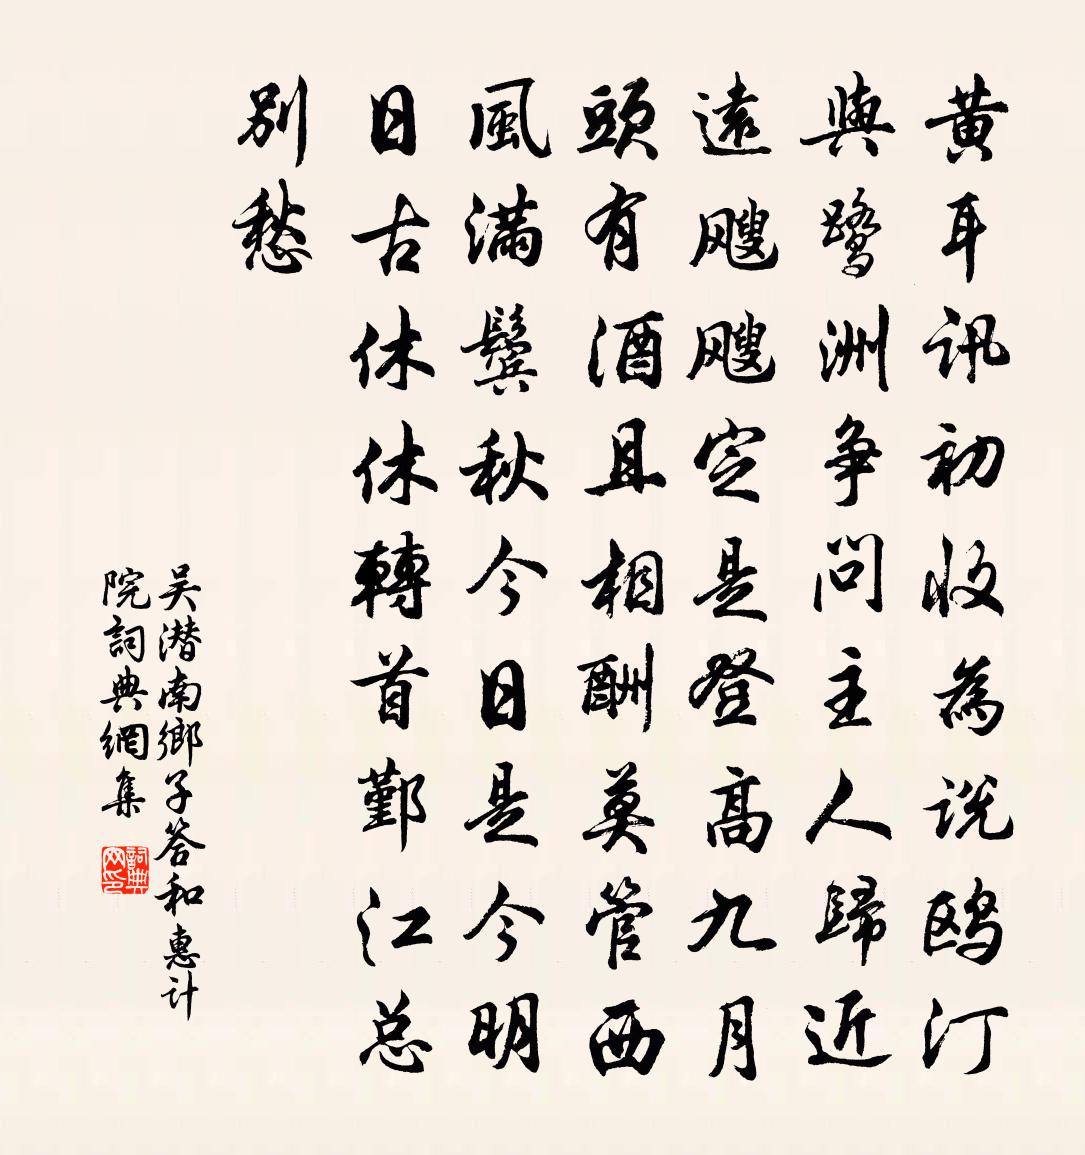 黄耳讯初收為说鸥汀
與鹭洲争问主人歸近
遠飕飕定是登高九月
頭有酒且相酬莫管西
風满鬓秋今日是今明
日古休休轉首鄞江总
别愁
吴潜南鄉子答和惠计
院詞典網集
詞典网印